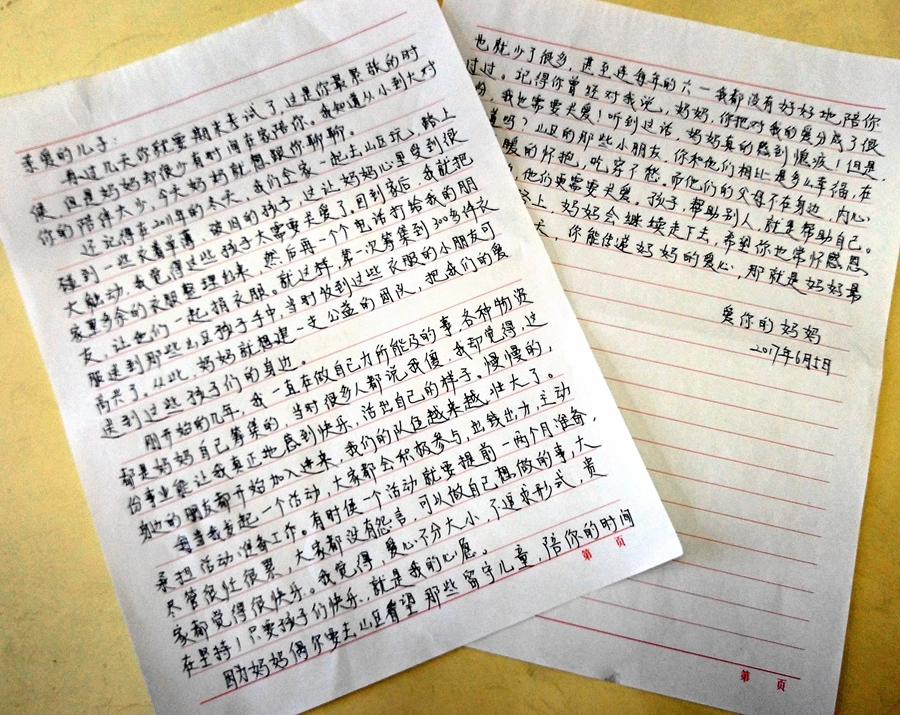 亲爱的儿子：
再过几天你就要期末考试了，这是你最紧张的时
候，但是妈妈却很少有时间在家陪你。我知道从小到大对
你的陪伴太少，今天妈妈就想跟你聊聊。
还记得在2011年的冬天，我们全家一起去山区玩，路上
碰到一些衣着单薄，破旧的孩子，这让妈妈心里受到很
大触动，我觉得这些孩子太需要关爱了。回到家后，我就把
家里多余的衣服整理出来，然后再一个个电话打给我的朋
友，让他们一起捐衣服。就这样，第一次筹集到300多件衣
服送到那些山区孩子手中，当时收到这些衣服的小朋友可
高兴了。从此，妈妈就想建一支公益的团队，把我们的爱
送到这些孩子们的身边。
刚开始的几年，我一直在做自己力所能及的事，各种物资
都是妈妈自己筹集的，当时很多人都说我傻，我却觉得，这
份事业能让我真正地感到快乐，活出自己的样子。慢慢的，
身边的朋友都开始加入进来，我们的队伍越来越壮大了。
每当我发起一个活动，大家都会积极参与，出钱出力，主动
承担活动准备工作。有时候一个活动就要提前一两个月准备，
尽管很忙很累，大家都没有怨言，可以做自己想做的事，大
家都觉得很快乐。我觉得，爱心不分大小，不追求形式，贵
在坚持！只要孩子们快乐，就是我的心愿。
因为妈妈偶尔要去山区看望那些留守儿童，陪你的时间
第 页
也就少了很多，甚至连每年的六一我都没有好好地陪你
过过。记得你曾经对我说，妈妈，你把对我的爱分成了很
份，我也需要关爱！听到这话，妈妈真的感到愧疚！但是，
吗？山区的那些小朋友，你和他们相比是多么幸福，在
暖的怀抱，吃穿不愁。而他们的父母不在身边，内心
他们更需要关爱。孩子，帮助别人就是帮助自己。
上，妈妈会继续走下去，希望你也常怀感恩
大，你能传递妈妈的爱心，那就是妈妈最
爱你的妈妈
2017年6月5日
第 页